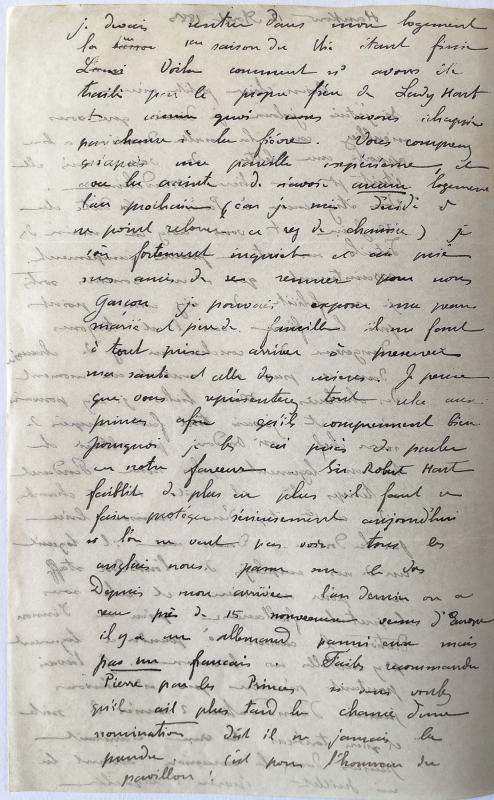 je devais rentrer dans mon logement
la saison du thé étant finie
Voila comment ns avons été
traités par le propre frère de Lady Hart
et comment nous avons échappé
par chance à la fièvre. Vous comprenez
qu'après une pareille expérience, et
avec la crainte de n'avoir aucun logement
l'an prochain (car je suis décidé à
ne point retourner à ce rez de chaussée) je
suis fortement inquiet et ai prié
mes amis de se remuer pour nous
Garçon je pouvais exposer ma peau
marié et père de famille il me faut
à tout prix arriver à préserver
ma santé et celle des miens. Je pense
que vous représenterez tout cela aux
princes afin qu'ils comprennent bien
pourquoi je les ai priés de parler
en notre faveur. Sir Robert Hart
faiblit de plus en plus il faut se
faire protéger sérieusement aujourd'hui
si l'on ne veut pas voir tous les
anglais nous passer sur le dos
Depuis mon arrivée l'an dernier on a
reçu près de 15 nouveaux venus d'Europe
il y a un allemand parmi eux mais
pas un français. Faites recommander
Pierre par les Princes si vous voulez
qu'il ait plus tard la chance d'une
nomination, dût il ne jamais la
prendre. c'est pour l'honneur du
pavillon !